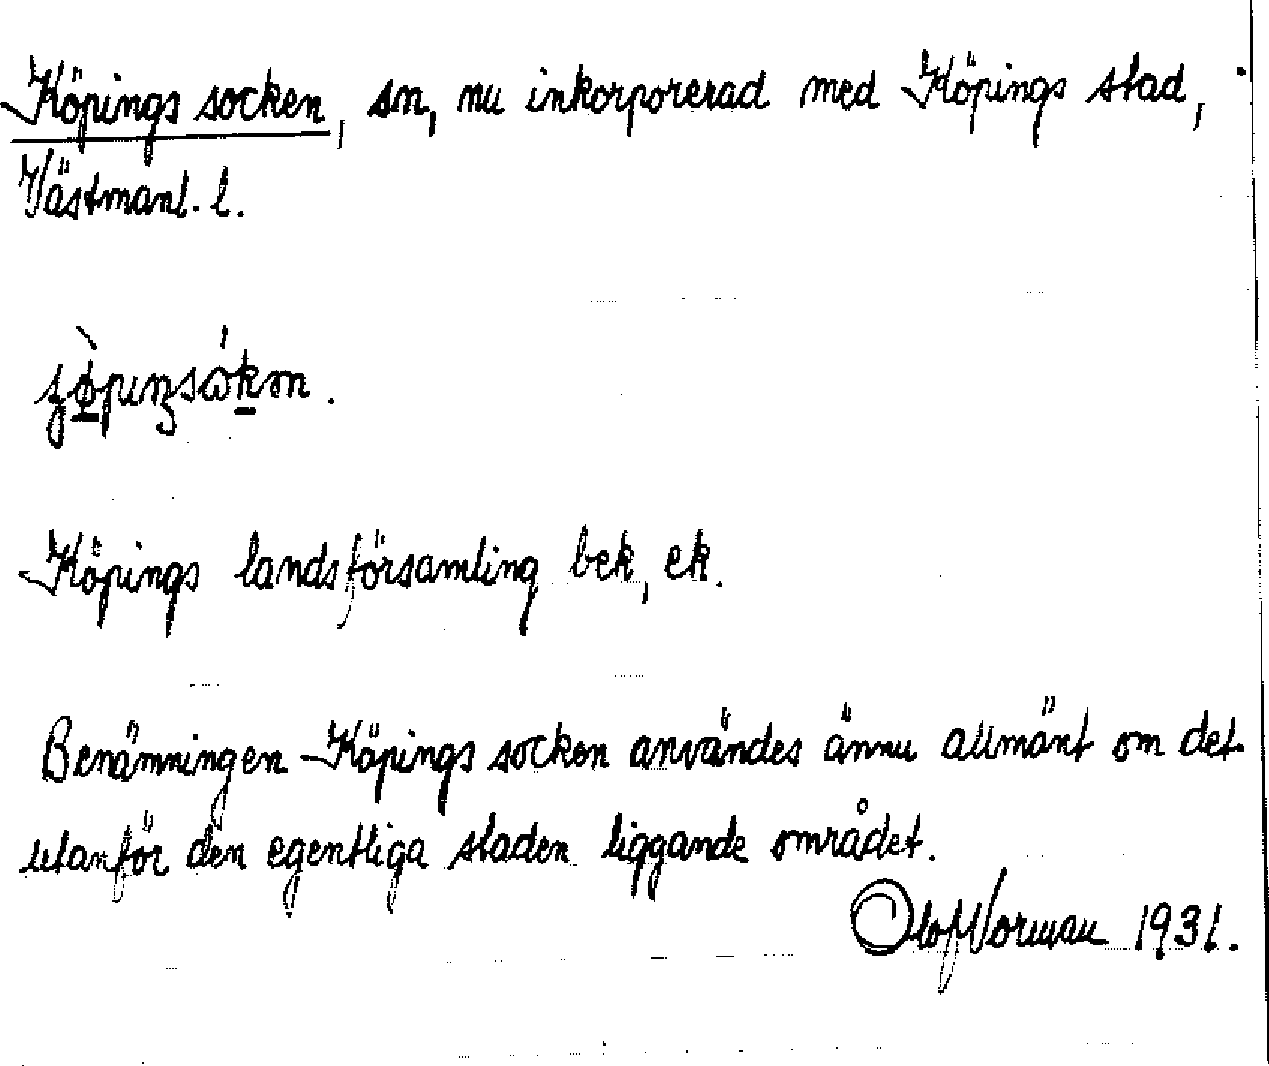 Köpings socken, sn, nu inkorporerad med Köpings stad,
Västmanl. l.
Köpings landsförsamling bek, ek.
Benämningen Köpings socken användes ännu allmänt om det
utanför den egentliga staden liggande området.
Olof Norman 1931.